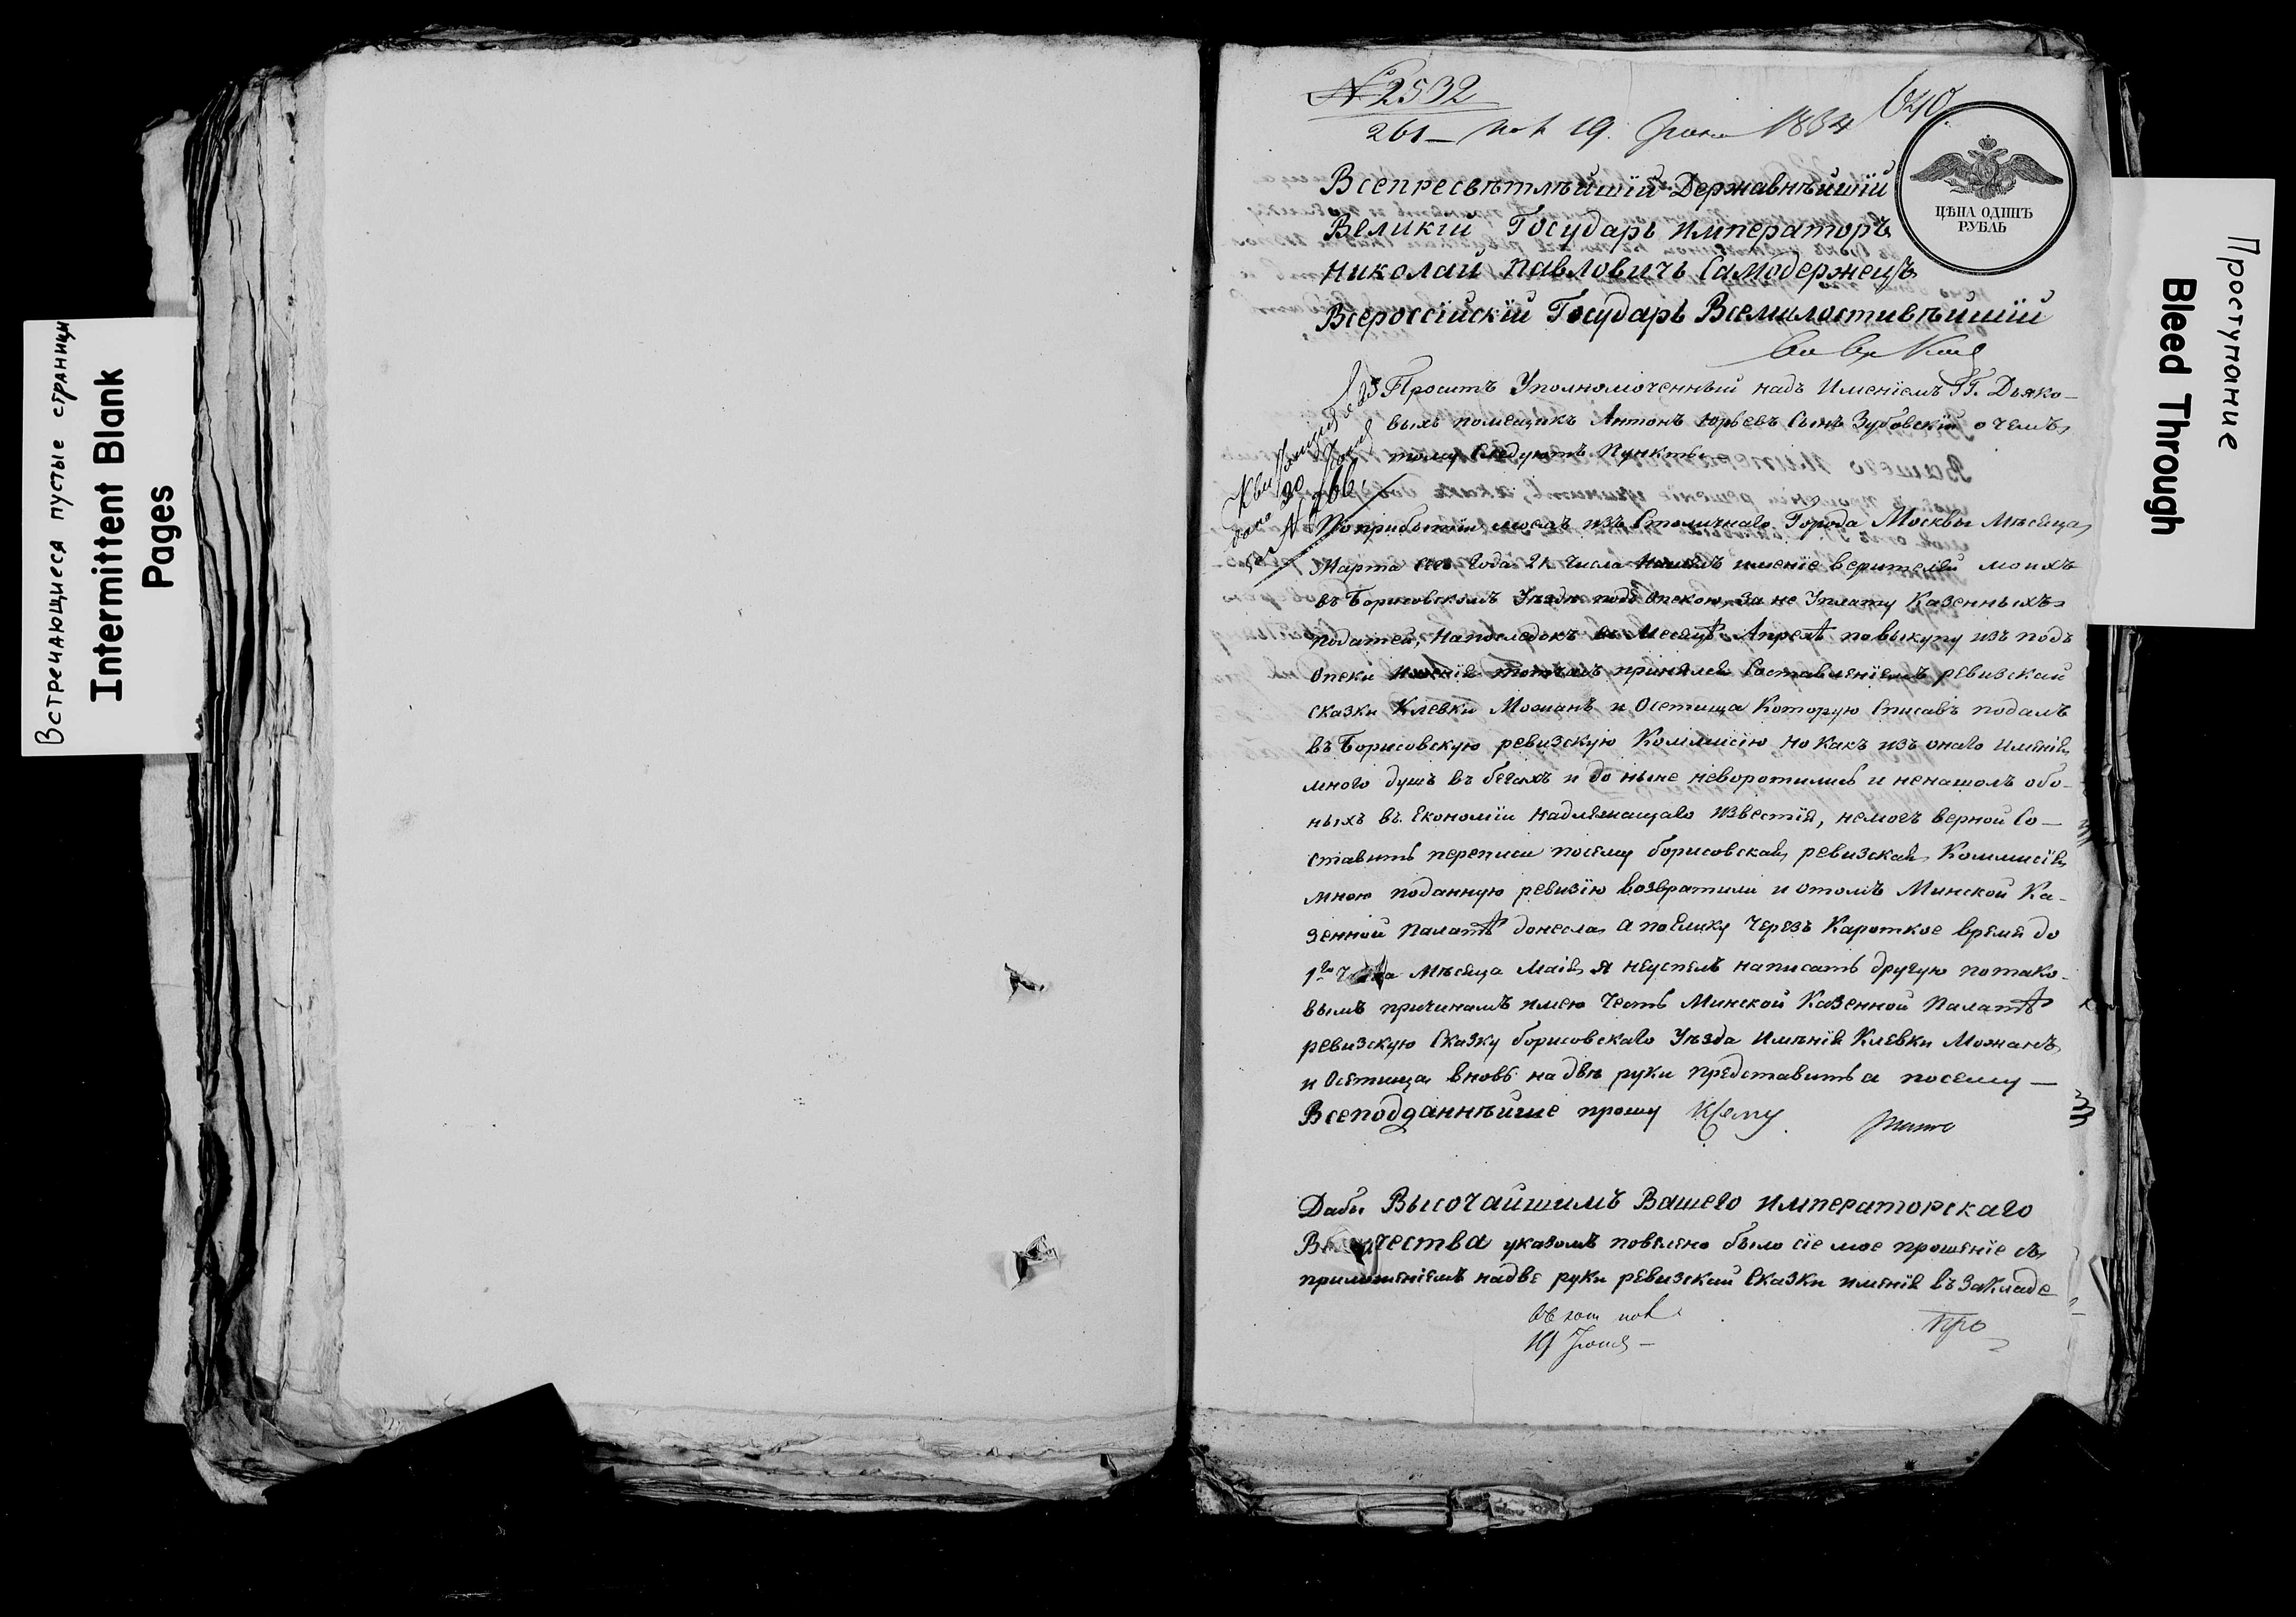 Встречающиеся пустые страницы
Intermittent Blank
Pages
№ 2532
261 19 1834
ЦѢНА ОДИНЪ
РУБЛЬ
Всепресвѣтлѣйшій Державнѣйшій
Великій Государь Императоръ
Николай Павловичь Самодержецъ
Всероссійскій Государь Всемилостивѣйшій
Проситъ Уполномоченный надъ Именіемъ ГГ. Дьяко-
выхъ помещикъ Антонъ Юрьевъ Сынъ Зубовскій о чемъ,
тому Следуютъ Пункты
По прибытіи моемъ изъ Столичнаго Города Москвы Мѣсяца
Марта сего Года 21 Числа Нашолъ именіе верителей моихъ
въ Борисовскомъ Уѣздѣ подъ Опекою, за не Уплату Казенныхъ
податей, Напоследокъ въ Месяцѣ Апрелѣ по выкупу изъ подъ
Опеки Именія тотчасъ принялся Составленіемъ ревизской
сказки Клевки Можанъ и Осетища Которую Списавъ подалъ
въ Борисовскую ревизскую Коммисію но Какъ изъ онаго Именія
много душъ въ бегахъ и до ныне неворотились и ненашолъ обо-
ныхъ въ Економіи Надлежащаго Известія, немогъ верной Со-
ставить переписи посему борисовская ревизская Коммисія
мною поданную ревизію возвратили и отомъ Минской Ка-
зенной Палатѣ донесла, а поелику Черезъ Кароткое время до
1го Мѣсяца Маія я неуспелъ написать другую потако-
вымъ причинамъ имею Честь Минской Казенной Палатѣ
ревизскую Сказку борисовскаго Уѣзда Имѣнія Клевки Можанъ
и Осетища вновь на двѣ руки представить а посему
Всеподданнѣйше прошу Къ сему
Дабы Высочайшимъ Вашего Императорскаго
Величества указомъ повелено было сіе мое прошеніе съ
приложеніемъ надве руки ревизской Сказки именія въ Закладе
19 Іюня
Про
Проступание
Bleed Through